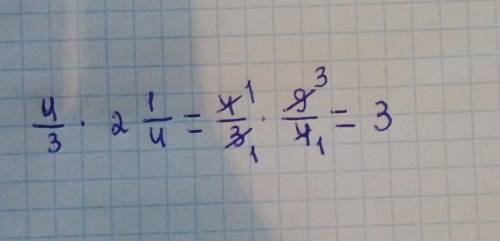 4/3 · 2 1/4 = 4 1/3 1 · 9 3/4 1 = 3